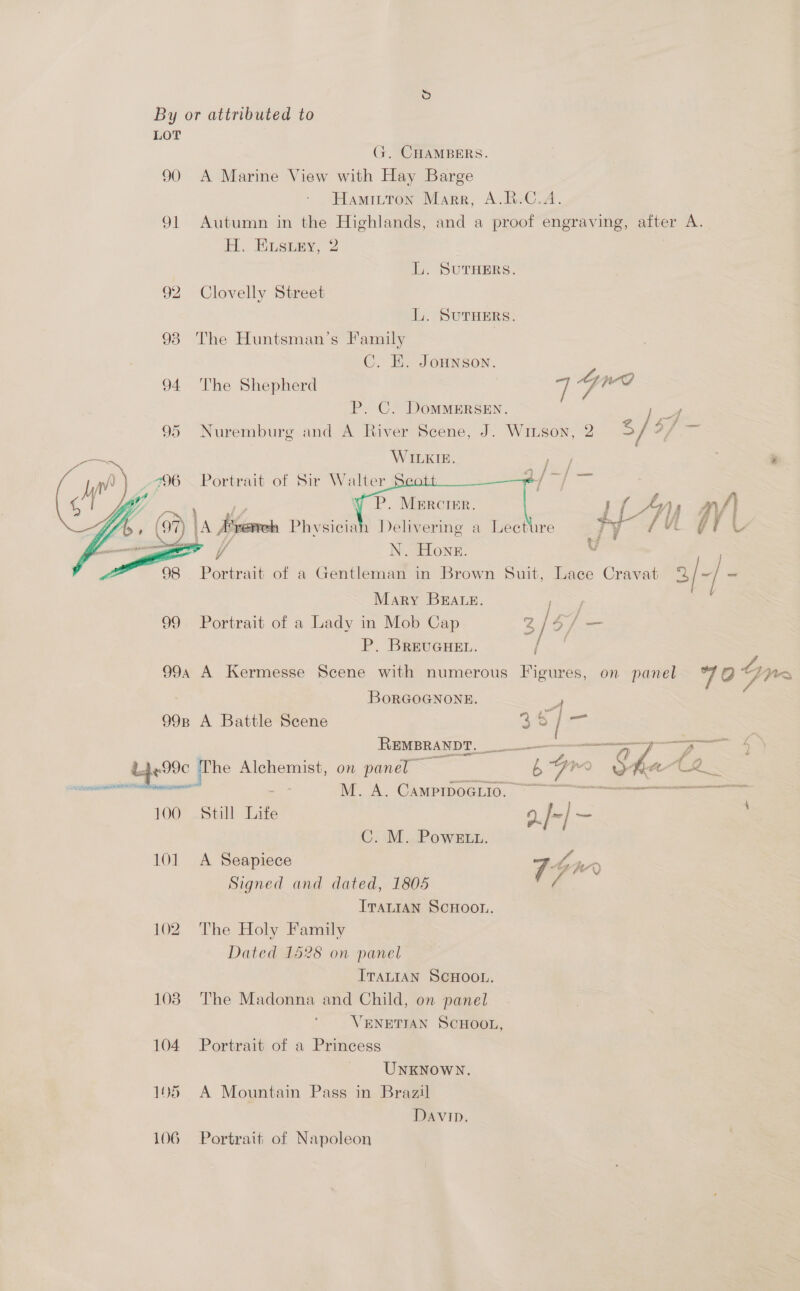 By or attributed to
LOT
G. CHAMBERS.
90 A Marine View with Hay Barge
HAMILTON MARR, A.R.C.A.
91 Autumn in the Highlands, and a proof engraving, after A.
H. ELSLEY, 2
L. SUTHERS.
92 Clovelly Street
L. SUTHERS.
93 The Huntsman's Family
C. E. JOHNSON.
94 The Shepherd 7 Gns
P. C. DOMMERSEN.
95 Nuremburg and A River Scene, J. WILSON, 2 3/5/-
WILKIE.
96 Portrait of Sir Walter Scott 2/-/-
P. MERCIER.
97 A French Physician Delivering a Lecture
N. HONE.
98 Portrait of a Gentleman in Brown Suit, Lace Cravat 3/-/-
MARY BEALE.
99 Portrait of a Lady in Mob Cap 3/5/-
P. BREUGHEL.
99A A Kermesse Scene with numerous Figures, on panel 70 Gns
BORGOGNONE.
99B A Battle Scene 35/-
REMBRANDT.
99C The Alchemist, on panel 6 Gns
M. A. CAMPIDOGLIO.
100 Still Life 2/-/-
C. M. POWELL.
101 A Seapiece 7 Gns
Signed and dated, 1805
ITALIAN SCHOOL.
102 The Holy Family
Dated 1528 on panel
ITALIAN SCHOOL.
103 The Madonna and Child, on panel
VENETIAN SCHOOL,
104 Portrait of a Princess
UNKNOWN.
105 A Mountain Pass in Brazil
DAVID.
106 Portrait of Napoleon